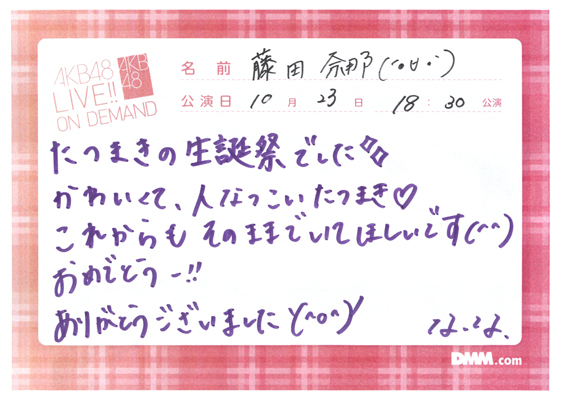 AKB48
LIVE!!
ON DEMAND
AKB
48
名前 藤田 奈那(´•ㅂ•`)
公演日 10月23日 18:30公演
たつまきの生誕祭でした
かわいくて、人なつこいたつまき♡
これからもそのままでいてほしいです(^^)
おめでとうー!!
ありがとうございました\(^o^)/
なな。
DMM.com